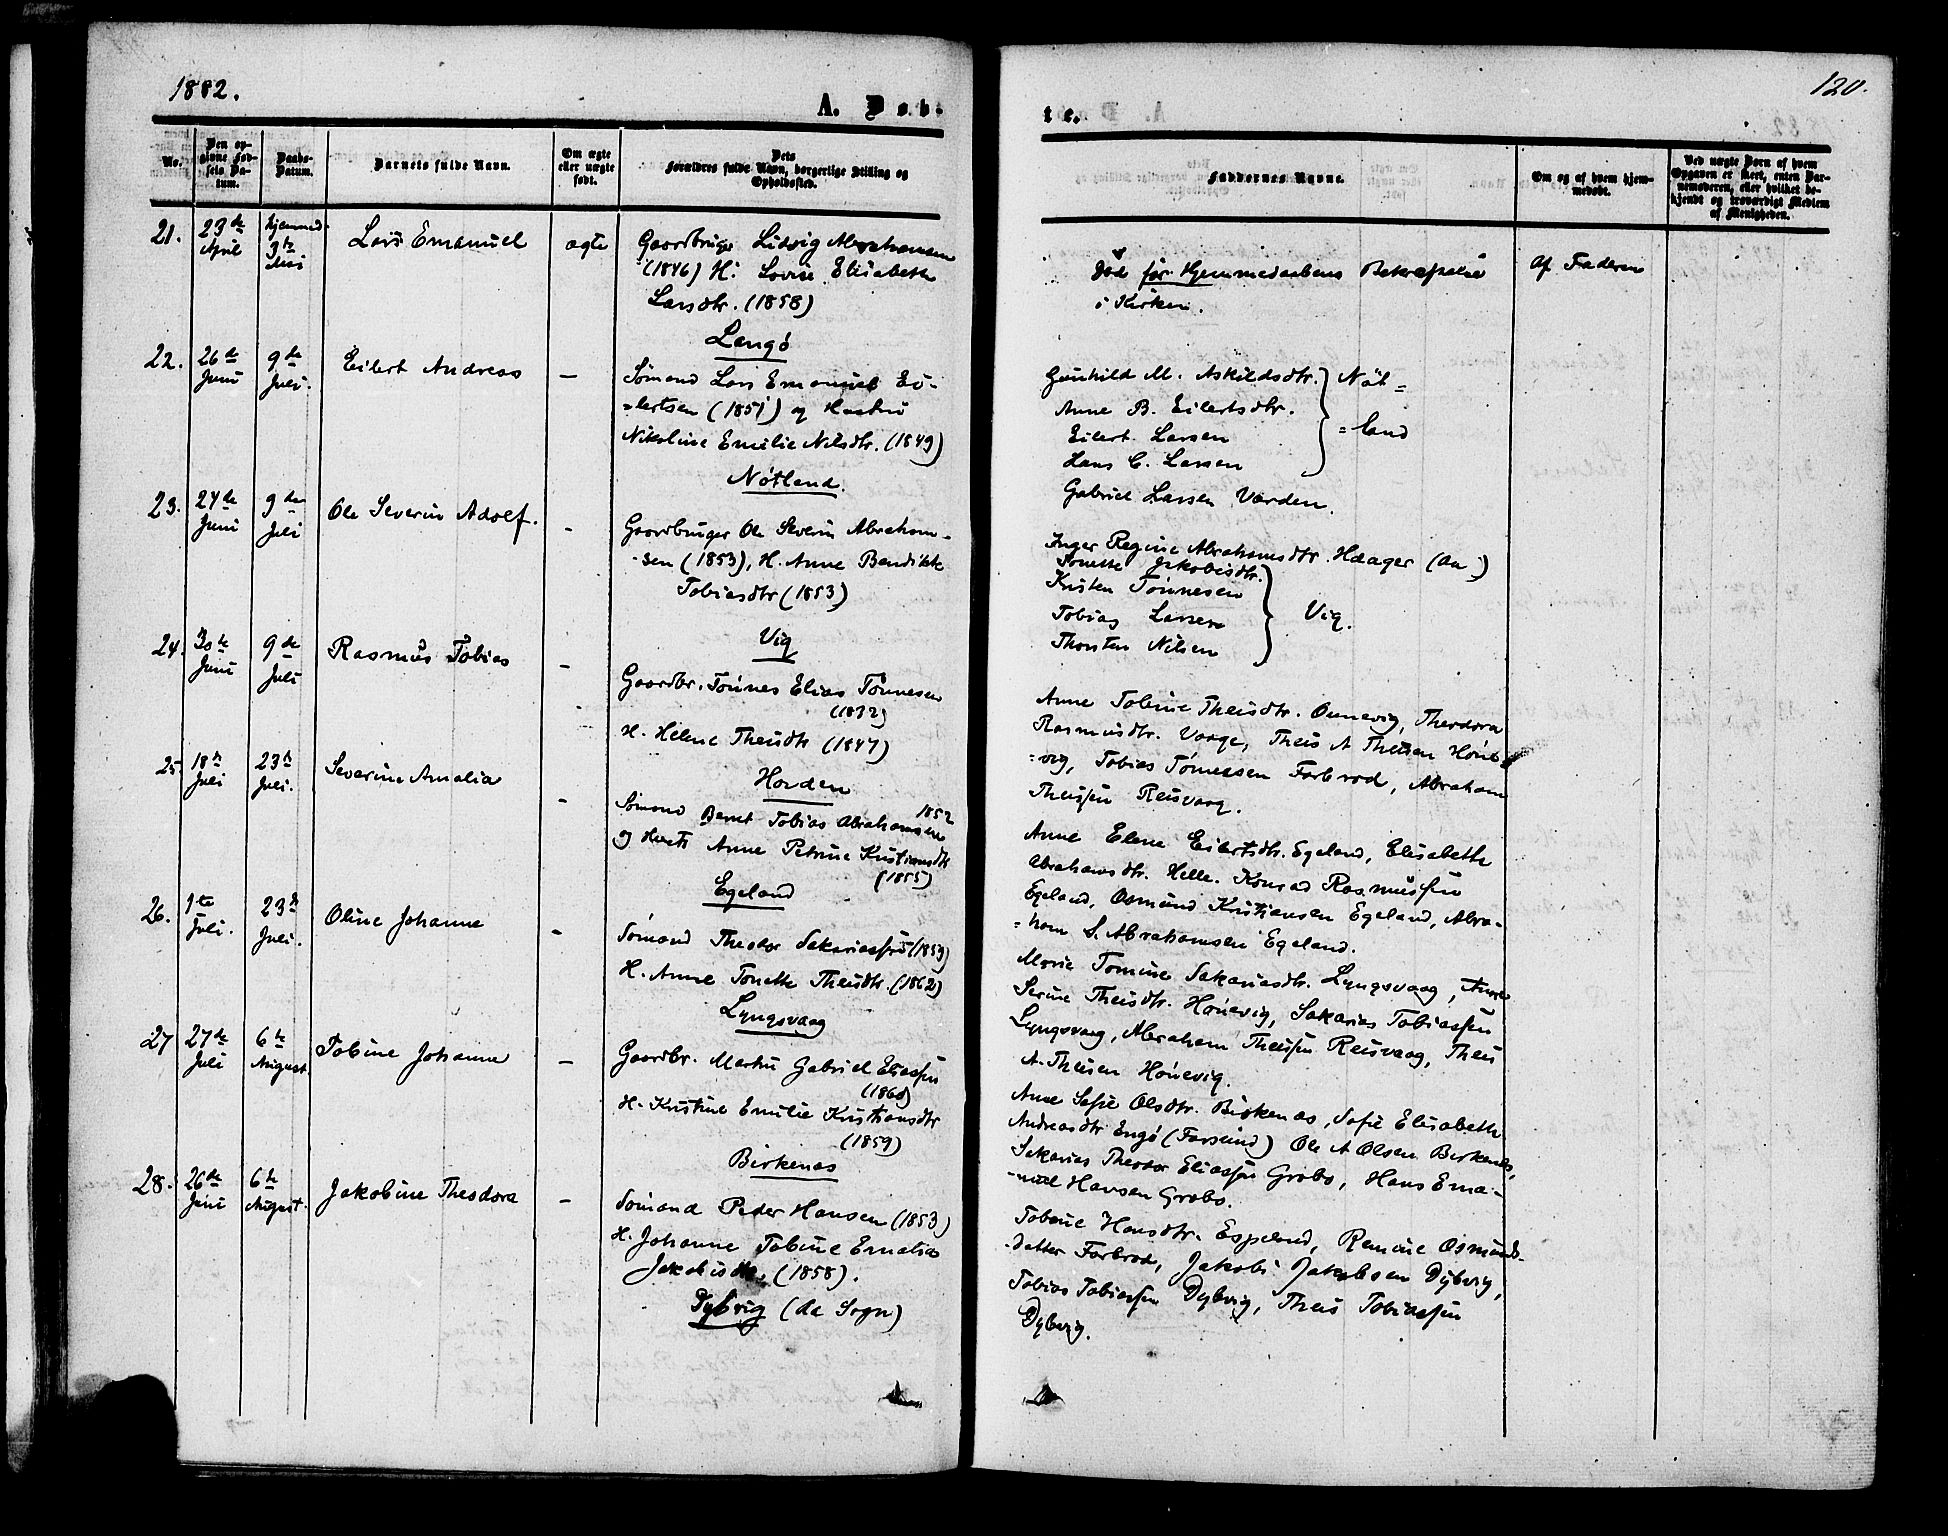 1882.
A. Døb-
No.
Den opgivne Fødsels Datum.
Daabs-Datum.
Barnets fulde Navn.
Om ægte eller uægte født.
Dets Forældres fulde Navn, borgerlige Stilling og Opholdssted.
21.
23de April
hjemmed. 3te Mai
Lars Emanuel
ægte
Gaardbruger Ludvig Abrahamsen
(1846) H: Lovise Elisabeth
Larsdtr. (1858)
Langö
22.
26de Juni
9de Juli.
Eilert Andreas
—
Sömand Lars Emanuel Ei-
=lertsen (1851) og Hustru
Nikoline Emilie Nilsdtr. (1849)
Nötland.
23.
24de Juni
9de Juli
Ole Severin Adolf.
-
Gaardbruger Ole Severin Abraham-
-sen (1853), H. Anne Bendikte
Tobiasdtr (1853)
Vig
24.
30te Juni
9de Juli
Rasmus Tobias
-
Gaardbr. Tönnes Elias Tönnesen
(1832)
H. Helene Theisdtr (1847)
Horden
25.
18de Juli
23de Juli.
Severine Amalia
-
Sömand Bernt Tobias Abrahamsen 1852
og Hustr Anne Petrine Kristiansdtr
(1855)
Egeland
26.
1ste Juli.
23de Juli.
Oline Johanne
-
Sömand Theodor Sakariassen (1859)
H. Anne Tonette Theisdtr. (1862)
Lyngsvaag
27
27de Juli
6te August
Tobine Johanne
—
Gaardbr. Martin Gabriel Eliassen
(1860)
H. Kristine Emilie Kristiansdtr
(1859)
Birkenas
28.
26de Juni
6te August.
Jakobine Theodora
-
Sömand Peder Hansen (1853)
H. Johanne Tobine Emalia
Jakobsdtr, (1858).
Dybvig (da Sogn)
te.
120.
Faddernes Navne.
Om og af hvem hjemmedøbt.
Ved uægte Børn af hvem Opgaven er skeet, enten Barnemoderen, eller hvilket bekjendt og troværdigt Medlem af Menigheden.
Död för Hjemmedaabens Bekræftelse
i Kirken.
Af Faderen
Gunhild M. Askildsdtr. Nöt=
Anne B. Eilertsdtr.
Eilert Larsen =land
Hans C. Larsen
Gabriel Larsen Varden.
Inger Regine Abrahamsdtr. Haager (da )
Tonette Jakobsdtr.
Kristen Tönnesen
Tobias Larsen Vig.
Thorsten Nilsen
Anne Tobine Theisdtr. Önnevig, Theodora
Rasmusdtr. Vaage, Theis A Theisen Hönne
=vig, Tobias Tönnessen Farbrod, Abraham
Theissen Reisvaag.
Anne Elene Eilertsdtr. Egeland, Elisabeth
Abrahamsdtr. Helle. Konrad Rasmussen
Egeland, Osmund Kristiansen Egeland, Abra-
=ham S. Abrahamsen Egeland.
Marie Tomine Sakariasdtr. Lyngsvaag, Anne
Serine Theisdtr. Hönevig, Sakarias Tobiassen
Lyngsvaag, Abraham Theissen Reisvaag, Theis
A. Theisen Hönevig.
Anne Sofie Olsdtr. Birkenas, Sofie Elisabeth
Andreasdtr Engö (Farsund) Ole A Olsen Birkenes,
Sakarias Theodor Eliassen Grobo, Hans Ema-
-nuel Hansen Grobo.
Tobine Hansdtr. Espeland, Remine Osmunds-
-datter Farbrod, Jakob Jakobsen Dybvig,
Tobias Tobiassen Dybvig, Theis Tobiassen
Dybvig.